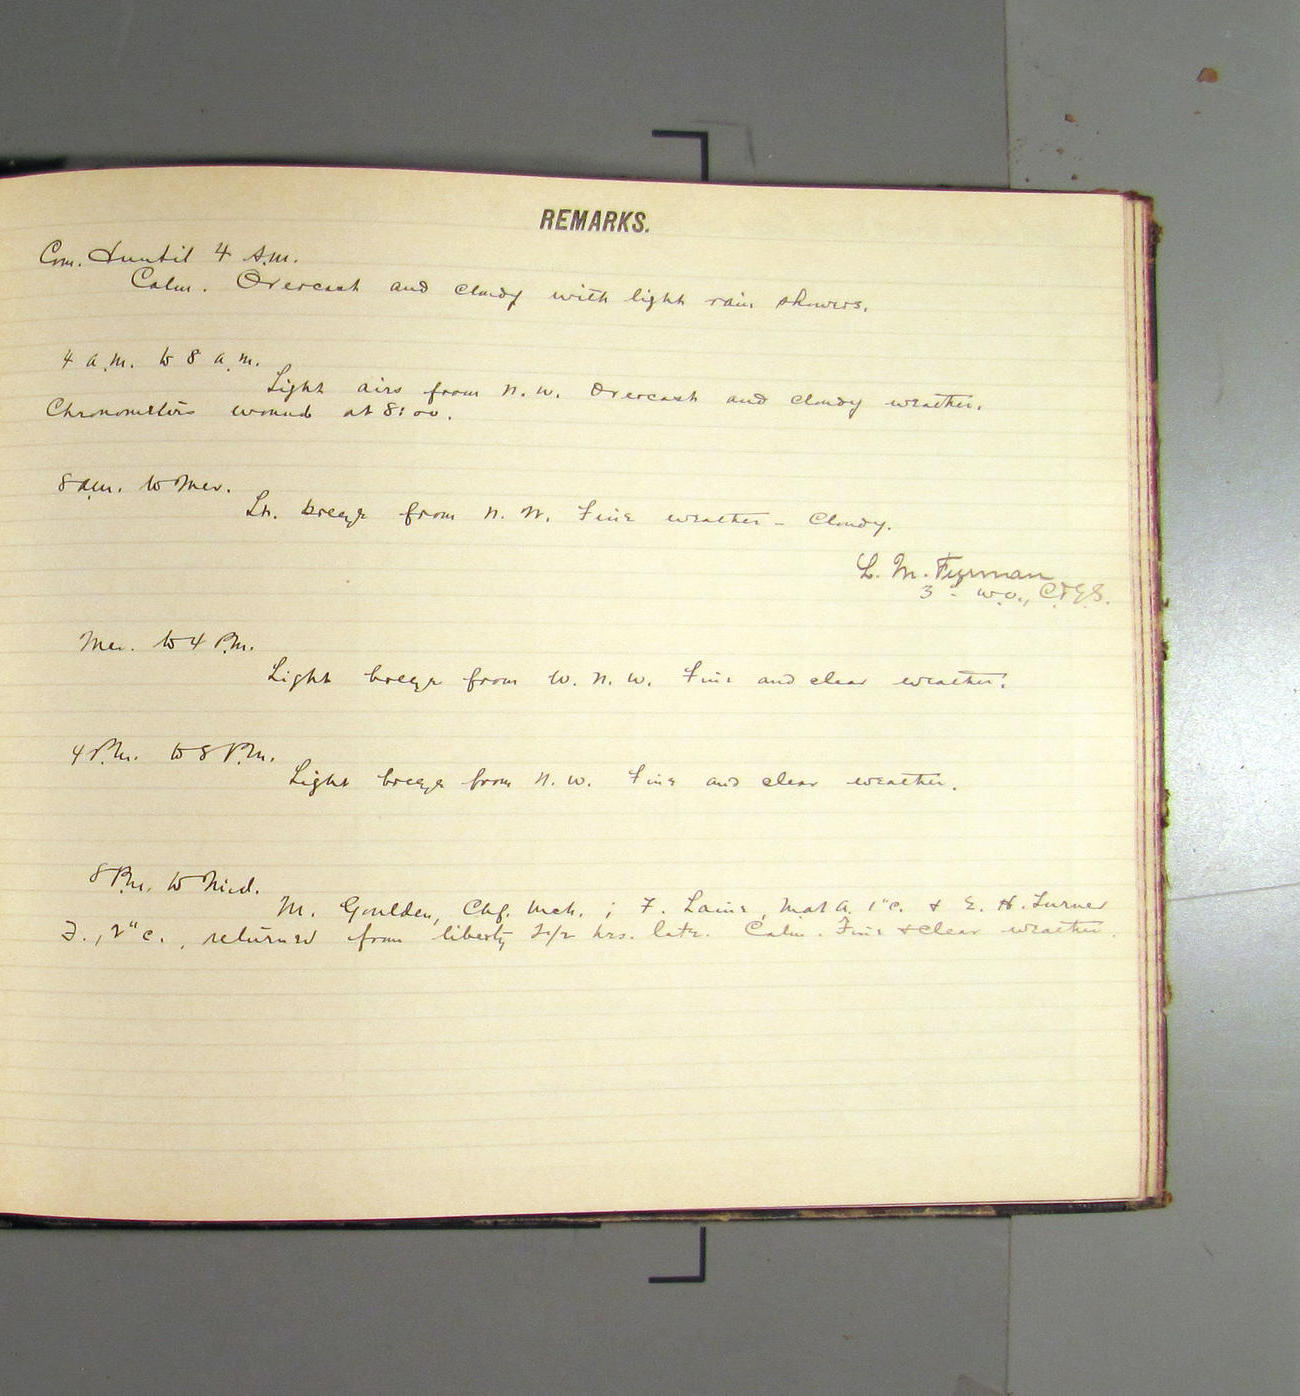 REMARKS.
Com. & until 4 A.m.
Calm. Overcast and cloudy with light rain showers.
4 a.m. to 8 a.m.
Light airs from N.W. Overcast and cloudy weather.
Chronometers wound at 8:00.
8 a.m. to Mer.
Lt. breeze from N.W. Fine weather - Cloudy.
L. M.
3 W.O., C.&G.S.
Mer. to 4 P.m.
Light breeze from W.N.W. Fine and clear weather.
4 P.m. to 8 P.m.
Light breeze from N.W. Fine and clear weather.
8 P.m. to Mid.
M. Goulden, Chf. Mch.; F. Laine, M at A. 1"c. & E. H. Turner
F., 2"c., returned from liberty hrs. late. Calm. Fine & clear weather.